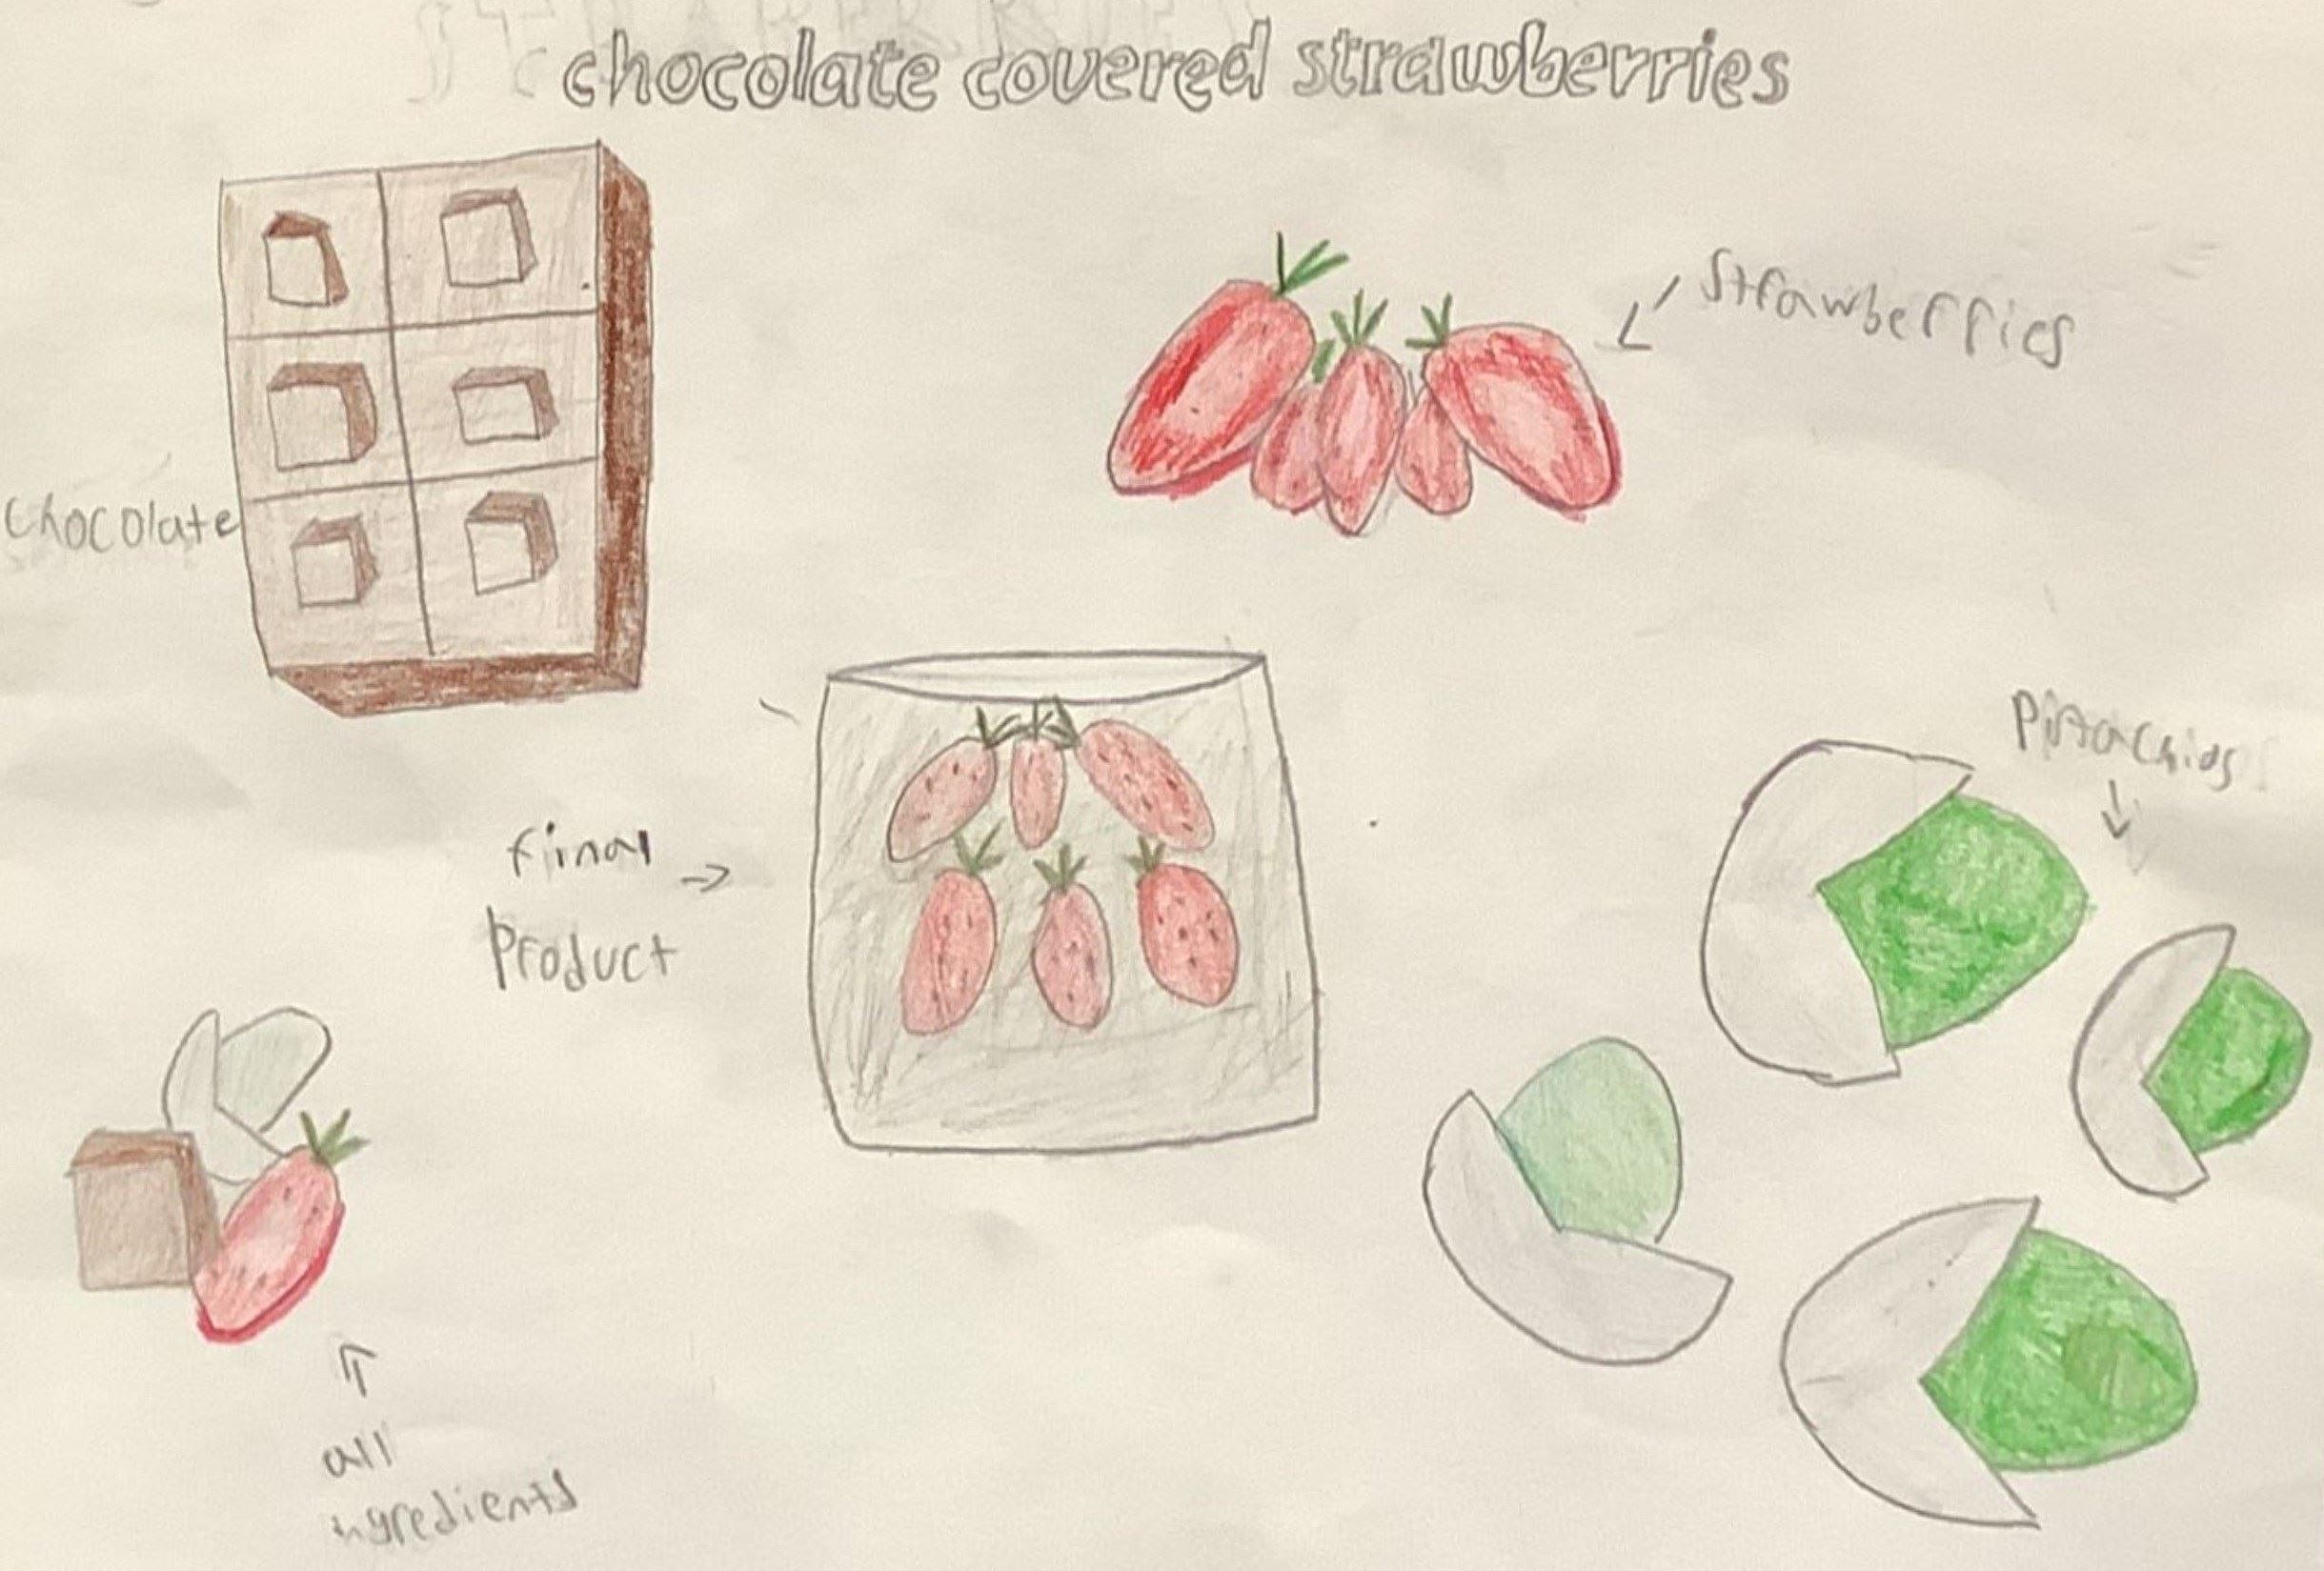 chocolate covered strawberries
strawberries
chocolate
Pistachios
final
Product
all
ingredients